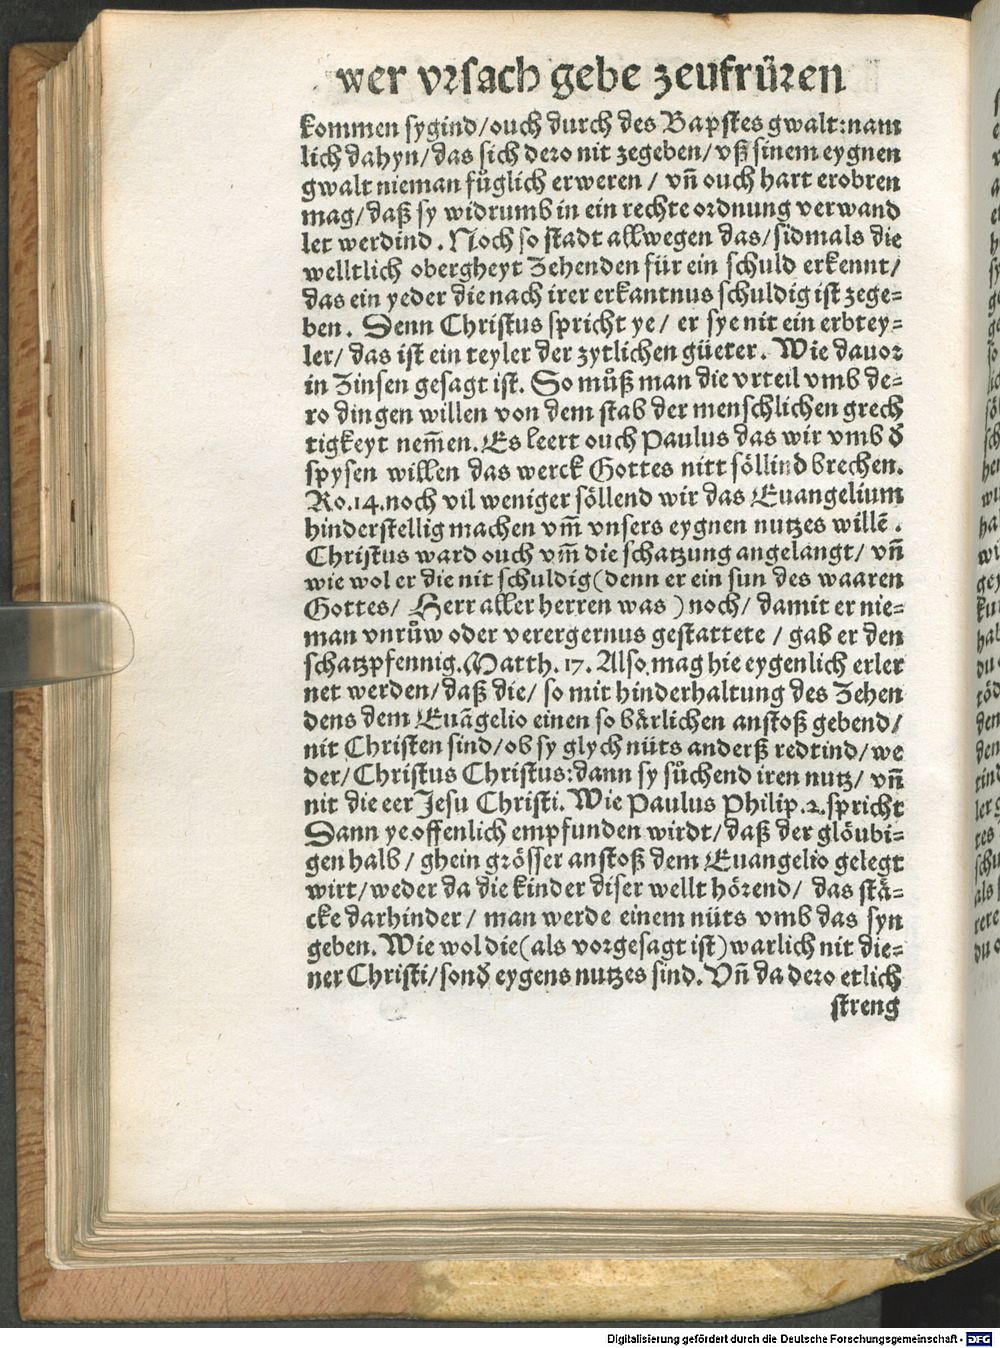 wer vrsach gebe zeufrůren
kommen sygind/ouch durch des Bapstes gwalt:nam
lich dahyn/das sich dero nit zegeben/vß sinem eygnen
gwalt nieman füglich erweren / vñ ouch hart erobren
mag/daß sy widrumb in ein rechte ordnung verwand
let werdind. Noch so stadt allwegen das/sidmals die
welltlich obergheyt Zehenden für ein schuld erkennt/
das ein yeder die nach irer erkantnus schuldig ist zege=
ben. Denn Christus spricht ye/ er sye nit ein erbtey=
ler/ das ist ein teyler der zytlichen güeter. Wie dauor
in Zinsen gesagt ist. So můß man die vrteil vmb de=
ro dingen willen von dem stab der menschlichen grech
tigkeyt nem̃en. Es leert ouch Paulus das wir vmb đ
spysen willen das werck Gottes nitt söllind brechen.
Ro.14.noch vil weniger söllend wir das Euangelium
hinderstellig machen vm̃ vnsers eygnen nutzes willẽ.
Christus ward ouch vm̃ die schatzung angelangt/ vñ
wie wol er die nit schuldig(denn er ein sun des waaren
Gottes/ Herr aller herren was ) noch/ damit er nie=
man vnrůw oder verergernus gestattete / gab er den
schatzpfennig.Matth. 17. Also mag hie eygenlich erler
net werden/daß die/ so mit hinderhaltung des Zehen
dens dem Euãgelio einen so bärlichen anstoß gebend/
nit Christen sind/ob sy glych nüts anderß redtind/we
der/Christus Christus:dann sy sůchend iren nutz/ vñ
nit die eer Jesu Christi. Wie Paulus Philip.2.spricht
Dann ye offenlich empfunden wirdt/daß der glöubi=
gen halb/ ghein grösser anstoß dem Euangelio gelegt
wirt/weder da die kinder diser wellt hörend/ das stä=
cke darhinder/ man werde einem nüts vmb das syn
geben. Wie wol die(als vorgesagt ist)warlich nit die=
ner Christi/sonđ eygens nutzes sind. Vñ da dero etlich
streng
Digitalisierung gefördert durch die Deutsche Forschungsgemeinschaft - DFG